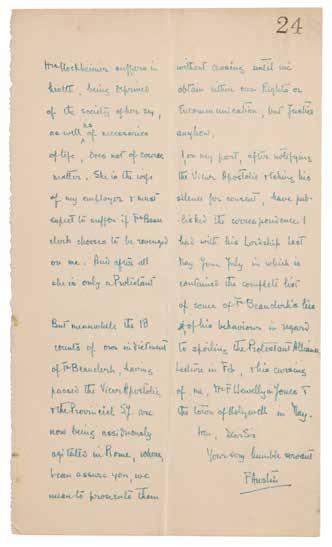 24
Mrs Hochheimer suffers in
health, being deprived
of the society of her sex,
as well as of necessaries
of life, does not of course
matter. She is the wife
of my employer & must
expect to suffer if Fr Beau
clerk chooses to be revenged
on me. And after all
she is only a Protestant
But meanwhile the 18
counts of our indictment
of Fr Beauclerk, having
passed the Vicar Apostolic
& the Provincial S.J. are
now being assiduously
agitated in Rome, where,
I can assure you, we
mean to prosecute them
without ceasing until we
obtain either our Rights or
Excommunication, but Justice
anyhow.
I, on my part, after notifying
the Vicar Apostolic & taking his
silence for consent, have pub-
lished the correspondence I
had with his Lordship last
May June July in which is
contained the complete list
of some of Fr Beauclerk's lies
& of his behaviour in regard
to spoiling the Protestant Alliance
Lecture in Feb, & his cursing
of me, Mr F. Hewellyn-Jones &
the town of Holywell in May.
I am, Dear Sir
Your very humble servant
F Austin